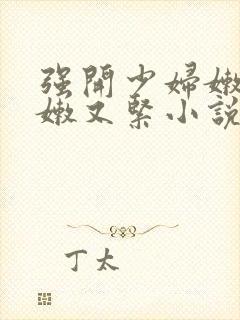 强開少婦嫩
嫩又緊小說
丁太